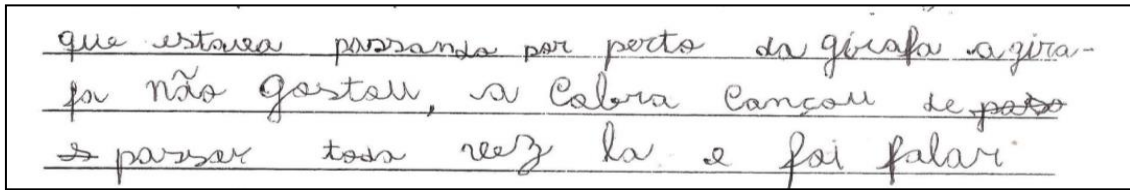 que estava passando por perto da girafa a gira-
fa não gostou, a Cobra Cançou de
passar toda vez la e foi falar